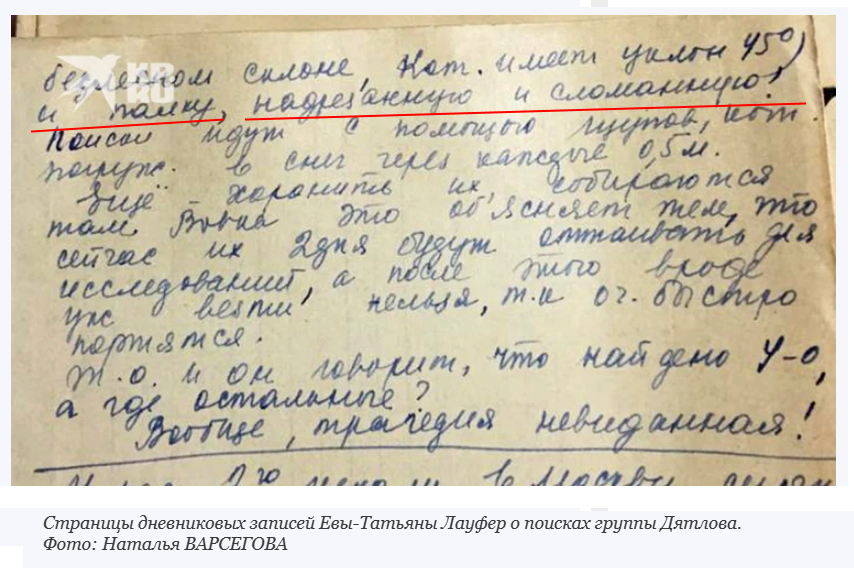 безлесном склоне, кот. имеет уклон 45°)
и палку, надрезанную и сломанную!
Поиски идут с помощью щупов, кот.
погруж. в снег через каждые 0,5м.
Ещё хоранить их собираются
там. Вовка это об'ясняет тем, что
сейчас их 2 дня будут оттаивать для
исследований, а после этого вроде
уж везти нельзя, т.к оч. быстро
портятся.
Т.о. и он говорит, что найдено 4-о,
а где остальные?
Вообще, трагедия невиданная!
в Москвы
Страницы дневниковых записей Евы-Татьяны Лауфер о поисках группы Дятлова.
Фото: Наталья ВАРСЕГОВА